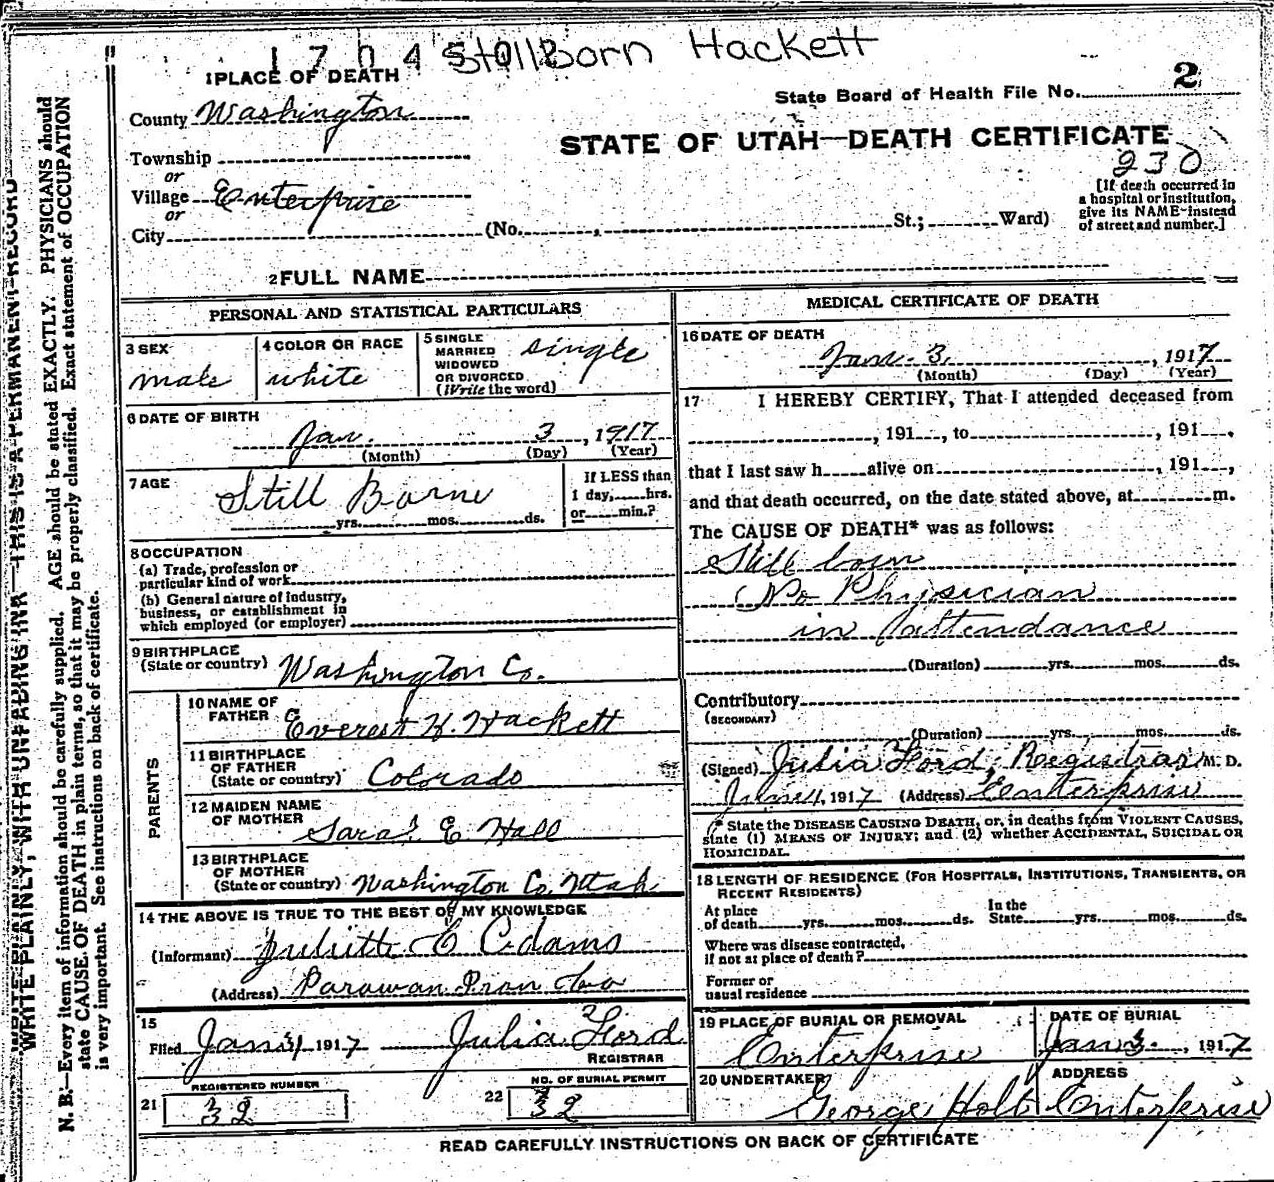 1 7 0 4 5 0 2 Stillborn Hackett
1 PLACE OF DEATH
2
State Board of Health File No.
County Washington
STATE OF UTAH—DEATH CERTIFICATE
230
Township
or
Village Enterprise
or
City (No. , St.; Ward)
[If death occurred in
a hospital or institution,
give its NAME instead
of street and number.]
2 FULL NAME
PERSONAL AND STATISTICAL PARTICULARS
3 SEX
male
4 COLOR OR RACE
white
5 SINGLE
MARRIED
WIDOWED
OR DIVORCED
(Write the word)
single
6 DATE OF BIRTH
Jan. 3, 1917
(Month) (Day) (Year)
7 AGE
Still Borne
yrs. mos. ds.
If LESS than
1 day, hrs.
or min.?
8 OCCUPATION
(a) Trade, profession or
particular kind of work
(b) General nature of industry,
business, or establishment in
which employed (or employer)
9 BIRTHPLACE
(State or country) Washington Co.
PARENTS
10 NAME OF
FATHER Everest H. Hackett
11 BIRTHPLACE
OF FATHER
(State or country) Colorado
12 MAIDEN NAME
OF MOTHER
E Hall
13 BIRTHPLACE
OF MOTHER
(State or country) Washington Co. Utah
14 THE ABOVE IS TRUE TO THE BEST OF MY KNOWLEDGE
(Informant) E Adams
(Address) Parowan Iron Co
15
Filed Jan 31, 1917 Julia Ford
REGISTRAR
REGISTERED NUMBER
21 32
NO. OF BURIAL PERMIT
22 32
MEDICAL CERTIFICATE OF DEATH
16 DATE OF DEATH
Jan. 3, 1917
(Month) (Day) (Year)
17 I HEREBY CERTIFY, That I attended deceased from
, 191 , to , 191 ,
that I last saw h alive on , 191 ,
and that death occurred, on the date stated above, at m.
The CAUSE OF DEATH* was as follows:
Still born
(No Physician
in attendance
(Duration) yrs. mos. ds.
Contributory
(SECONDARY)
(Duration) yrs. mos. ds.
(Signed) Julia Ford, Registrar M. D.
1917 (Address) Enterprise
* State the DISEASE CAUSING DEATH, or, in deaths from VIOLENT CAUSES,
state (1) MEANS OF INJURY; and (2) whether ACCIDENTAL, SUICIDAL OR
HOMICIDAL.
18 LENGTH OF RESIDENCE (FOR HOSPITALS, INSTITUTIONS, TRANSIENTS, OR
RECENT RESIDENTS)
At place
of death yrs. mos. ds.
In the
State yrs. mos. ds.
Where was disease contracted,
if not at place of death?
Former or
usual residence
19 PLACE OF BURIAL OR REMOVAL
Enterprise
DATE OF BURIAL
Jan 3., 1917
20 UNDERTAKER
George Holt
ADDRESS
Enterprise
READ CAREFULLY INSTRUCTIONS ON BACK OF CERTIFICATE
WRITE PLAINLY, WITH UNFADING INK—THIS IS A PERMANENT RECORD
N. B.—Every item of information should be carefully supplied. AGE should be stated EXACTLY. PHYSICIANS should
state CAUSE OF DEATH in plain terms, so that it may be properly classified. Exact statement of OCCUPATION
is very important. See instructions on back of certificate.